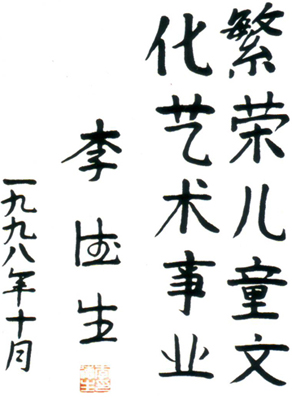 繁荣儿童文
化艺术事业
李德生
一九九八年十月